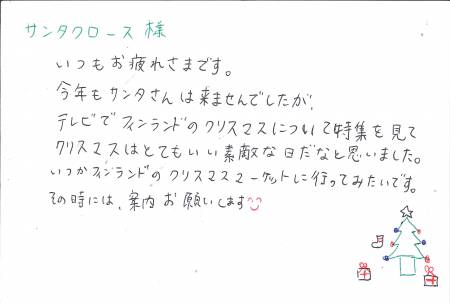 サンタクロース 様
いつもお疲れさまです。
今年もサンタさんは来ませんでしたが、
テレビでフィンランドのクリスマスについて特集を見て
クリスマスはとてもいい素敵な日だなと思いました。
いつかフィンランドのクリスマスマーケットに行ってみたいです。
その時には、案内お願いします